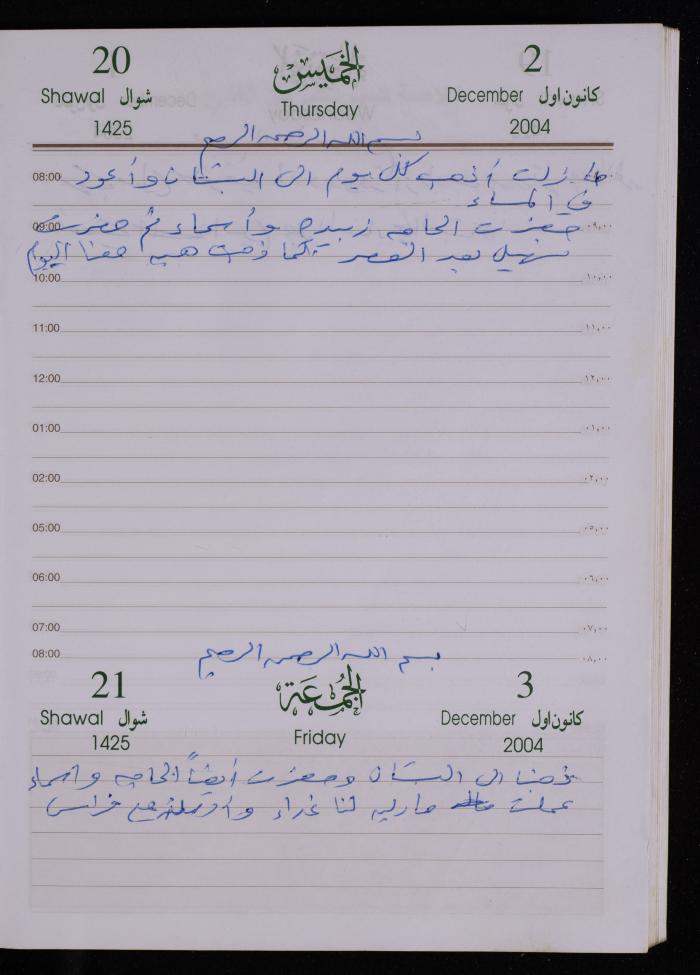 20 الخميس 2
Shawal شوال Thursday December كانون اول
1425 2004
بسم الله الرحمن الرحيم
08:00 ما زلت أذهب كل يوم الى البستان وأعود
في المساء
09:00 حضرت الحاجه زبيده وأسماء ثم حضرت ٠٩,٠٠
سهيل بعد العصر كما ذهبت هبه معنا اليوم
10:00 ١٠,٠٠
11:00 ١١,٠٠
12:00 ١٢,٠٠
01:00 ٠١,٠٠
02:00 ٠٢,٠٠
05:00 ٠٥,٠٠
06:00 ٠٦,٠٠
07:00 ٠٧,٠٠
08:00 بسم الله الرحمن الرحيم ٠٨,٠٠
21 الجمعة 3
Shawal شوال Friday December كانون اول
1425 2004
ذهبنا الى البستان وحضرت أيضاً الحاجه واسماء
عملت ماريه لنا غداء مع فراس